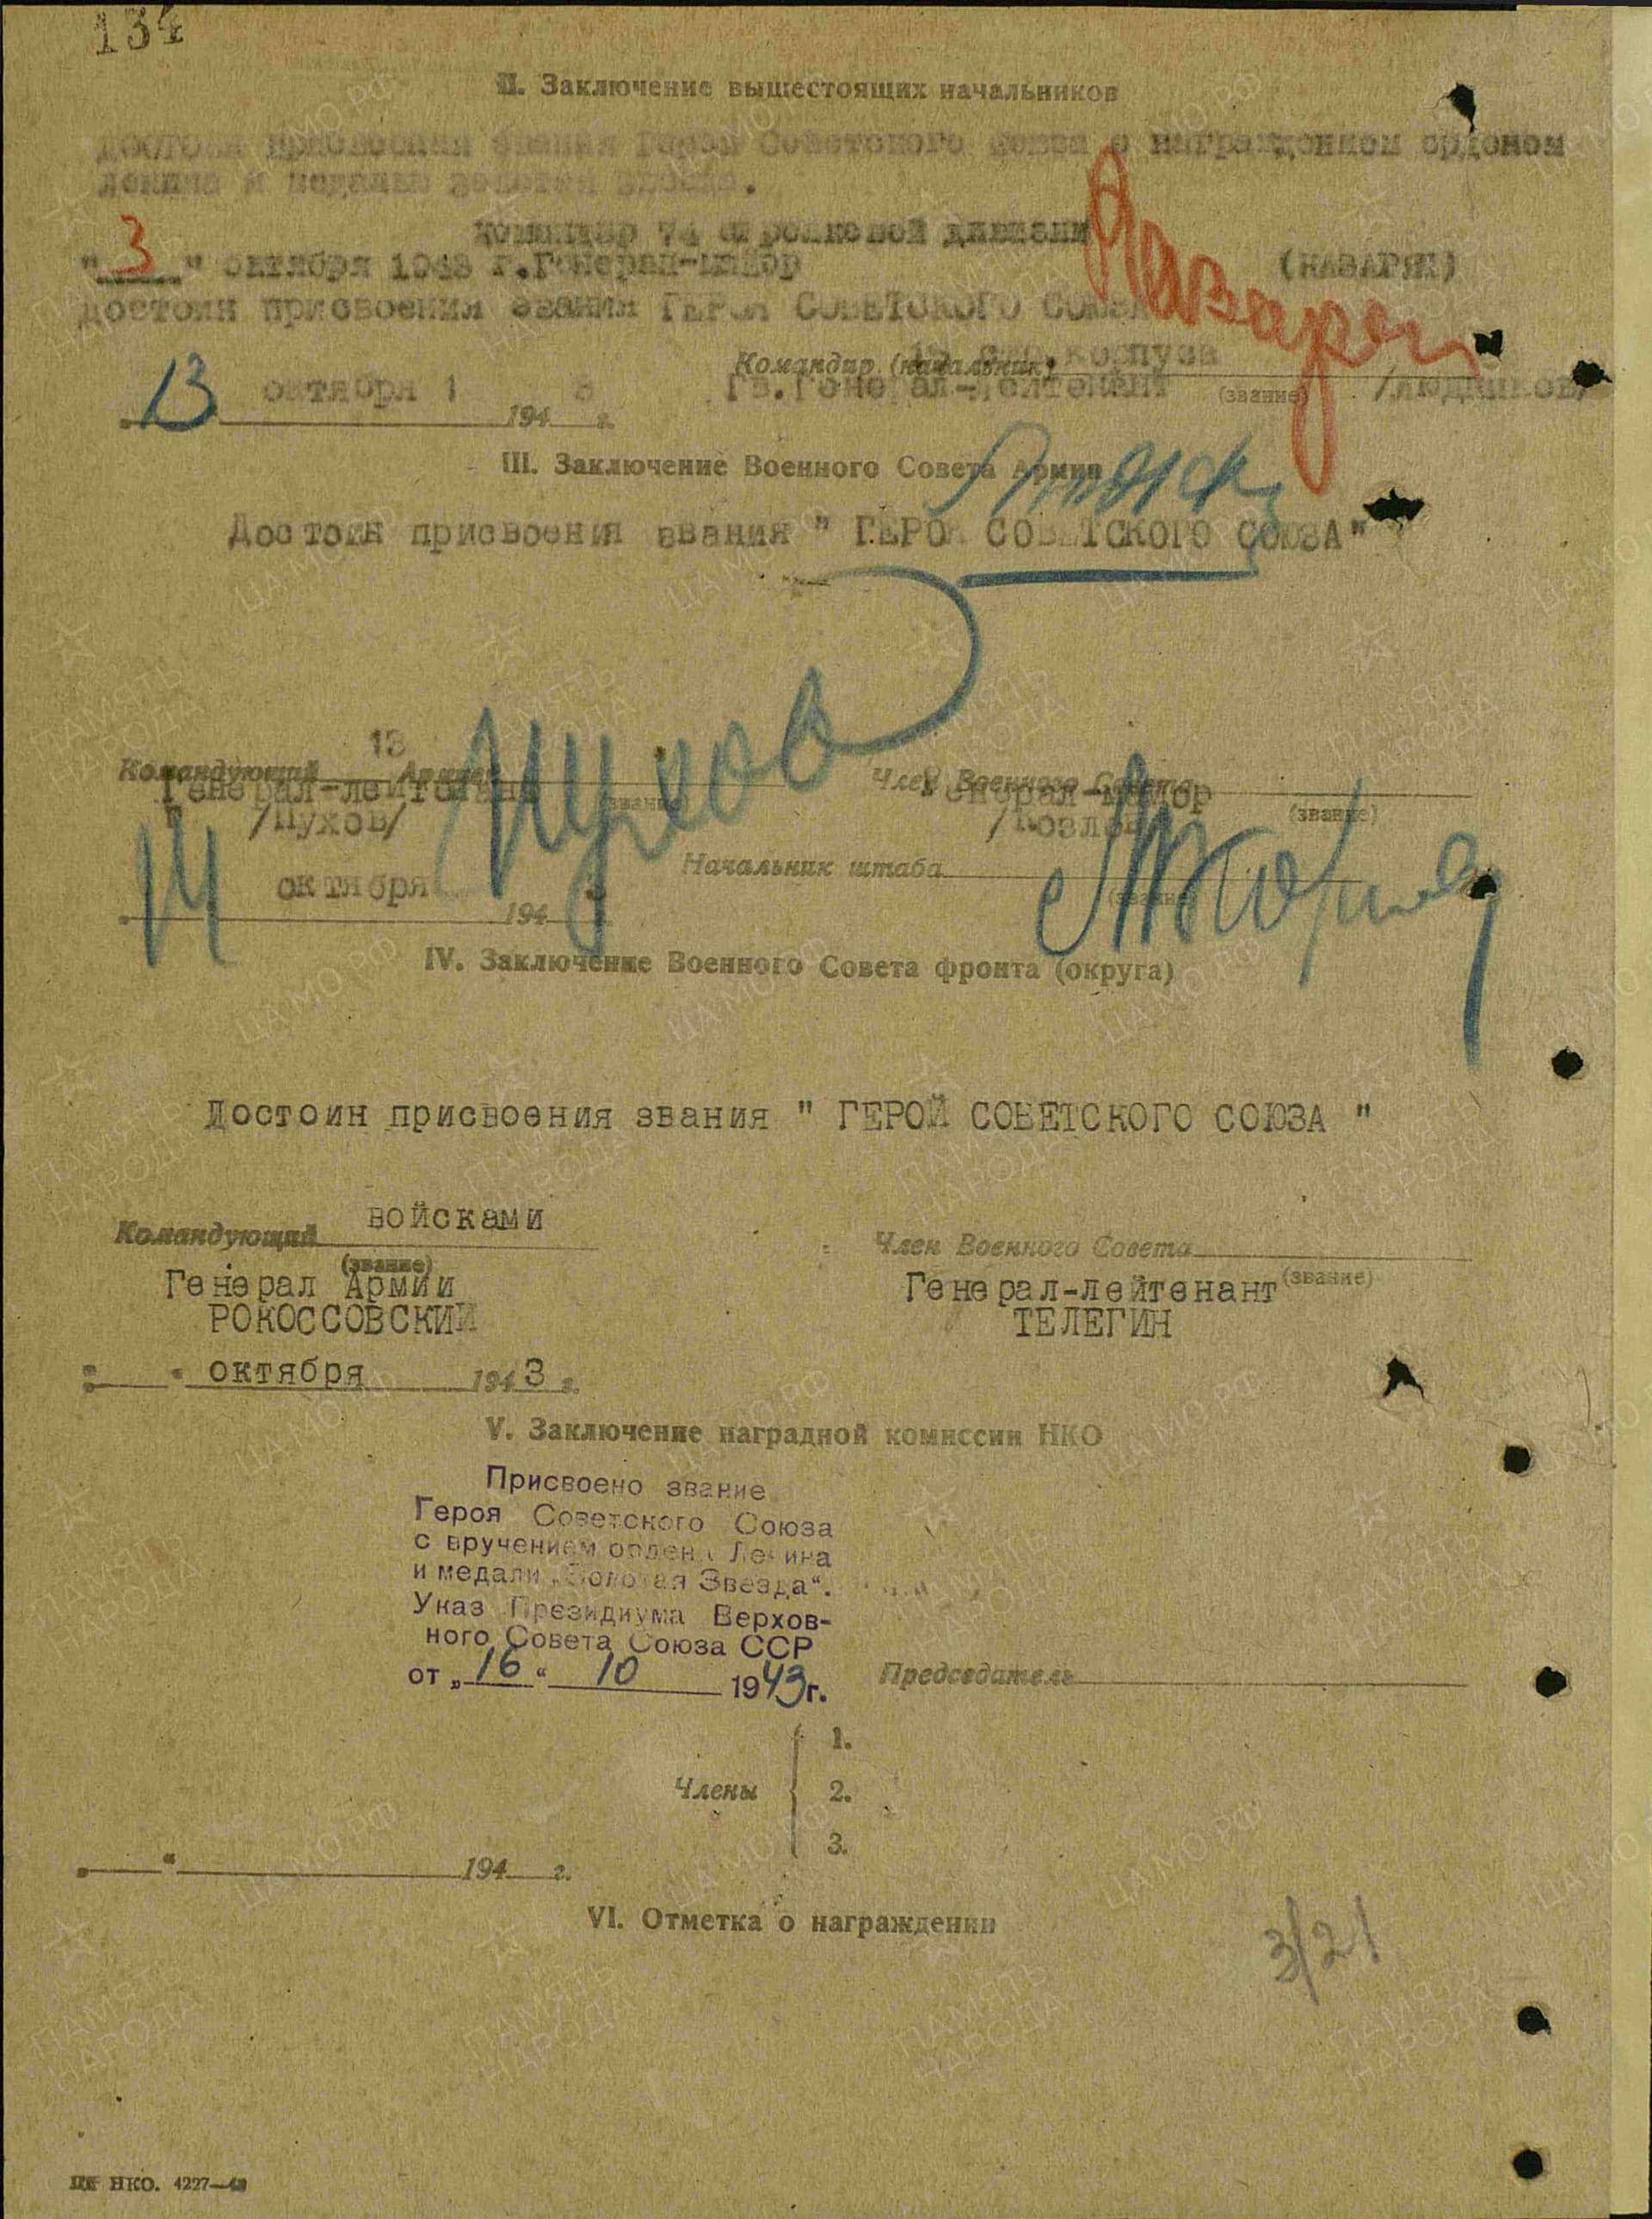 134
II. Заключение вышестоящих начальников
Достоин присвоения звания Героя Советского Союза с награждением орденом
Ленина и медалью Золотая Звезда.
Командир 74 стрелковой дивизии
"3" октября 1943 г. Генерал-майор (НАЗАРОВ)
Достоин присвоения звания ГЕРОЯ СОВЕТСКОГО СОЮЗА
Командир (начальник) корпуса
13 октября 1943 г. Гв. Генерал-лейтенант (звание)
III. Заключение Военного Совета Армии
Достоин присвоения звания " ГЕРОЯ СОВЕТСКОГО СОЮЗА"
Командующий 13 Армией Пухов Член Военного Совета
Генерал-лейтенант (звание) Генерал-майор (звание)
/Пухов/ /Козлов/
Начальник штаба
(звание)
14 октября 1943
IV. Заключение Военного Совета фронта (округа)
Достоин присвоения звания " ГЕРОЙ СОВЕТСКОГО СОЮЗА "
Командующий войсками Член Военного Совета
(звание) (звание)
Генерал Армии Генерал-лейтенант
РОКОССОВСКИЙ ТЕЛЕГИН
" " октября 1943 г.
V. Заключение наградной комиссии НКО
Присвоено звание
Героя Советского Союза
с вручением ордена Ленина
и медали „Золотая Звезда“.
Указ Президиума Верхов-
ного Совета Союза ССР
от „16“ 10 1943 г. Председатель
1.
Члены 2.
3.
" " 194 г.
VI. Отметка о награждении
3/21
НКО. 4227—